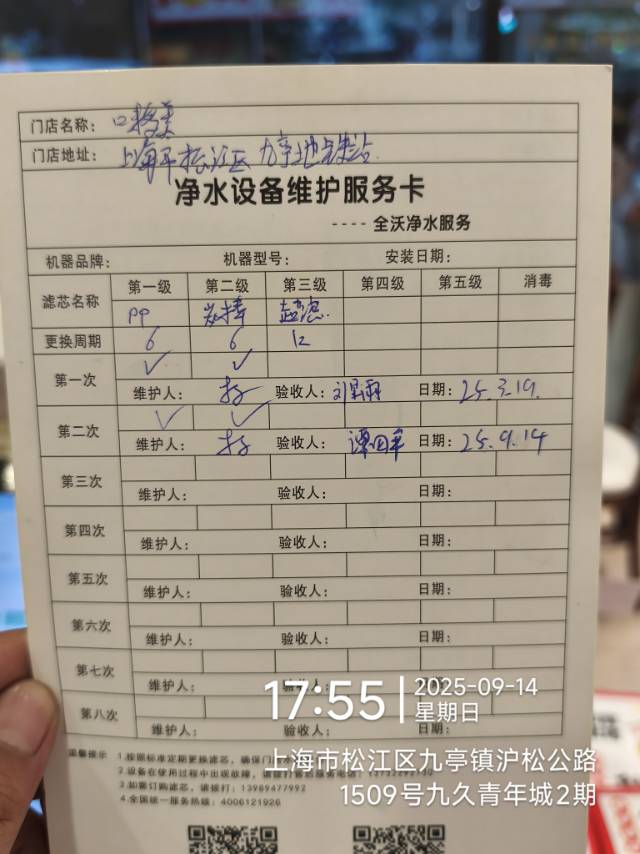 门店名称：口将美
门店地址：上海市松江区九亭地铁站
净水设备维护服务卡
---- 全沃净水服务
机器品牌： 机器型号： 安装日期：
滤芯名称 第一级 第二级 第三级 第四级 第五级 消毒
PP 炭棒 超滤
更换周期 6 6 12
第一次 ✓ ✓
维护人： 验收人： 日期：25.3.19.
第二次 ✓ ✓
维护人： 验收人：谭国军 日期：25.9.14
第三次
维护人： 验收人： 日期：
第四次
维护人： 验收人： 日期：
第五次
维护人： 验收人： 日期：
第六次
维护人： 验收人： 日期：
第七次
维护人： 验收人：
第八次
维护人： 验收人： 日期：
17:55 2025-09-14
星期日
温馨提示 1.按照标准定期更换滤芯，确保门
2.设备在使用过程中出现故障，请拨打售后服务电话：
3.如需订购滤芯，请拨打：13989477992
4.全国统一服务热线：4006121926
上海市松江区九亭镇沪松公路
1509号九久青年城2期